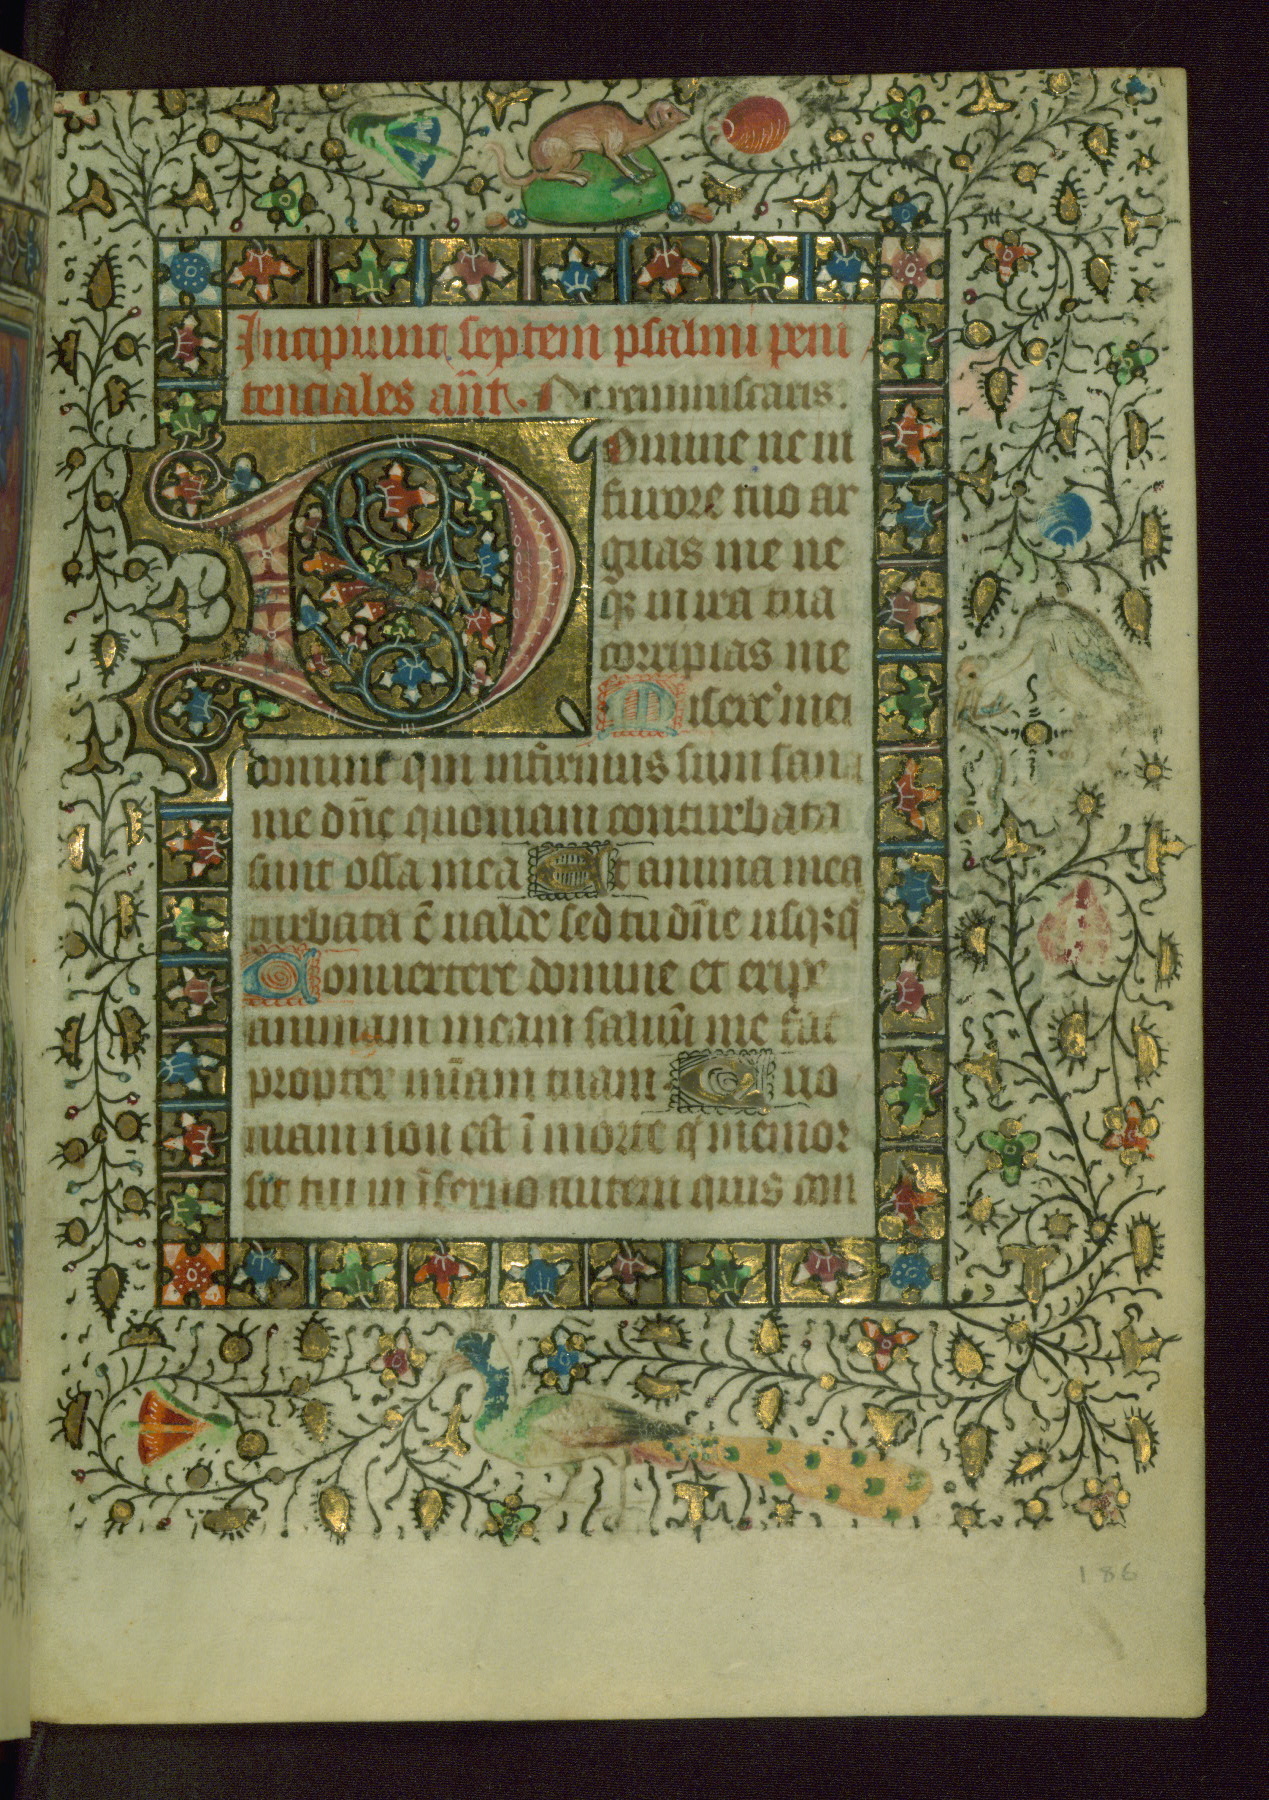 Incipiunt septem psalmi peni
tenciales añt. Ne reminiscaris.
Domine ne in
furore tuo ar
guas me ne
qꝫ in ira tua
corripias me
Miserere mei
domine qm̄ infirmus sum sana
me dñe quoniam conturbata
sunt ossa mea Et anima mea
turbata ē ualde sed tu dñe usqꝫq̄
Conuertere domine et eripe
animam meam saluū me fac
propter mīam tuam Quo
niam non est ī morte q̄ memor
sit tui in īferno autem quis con
186